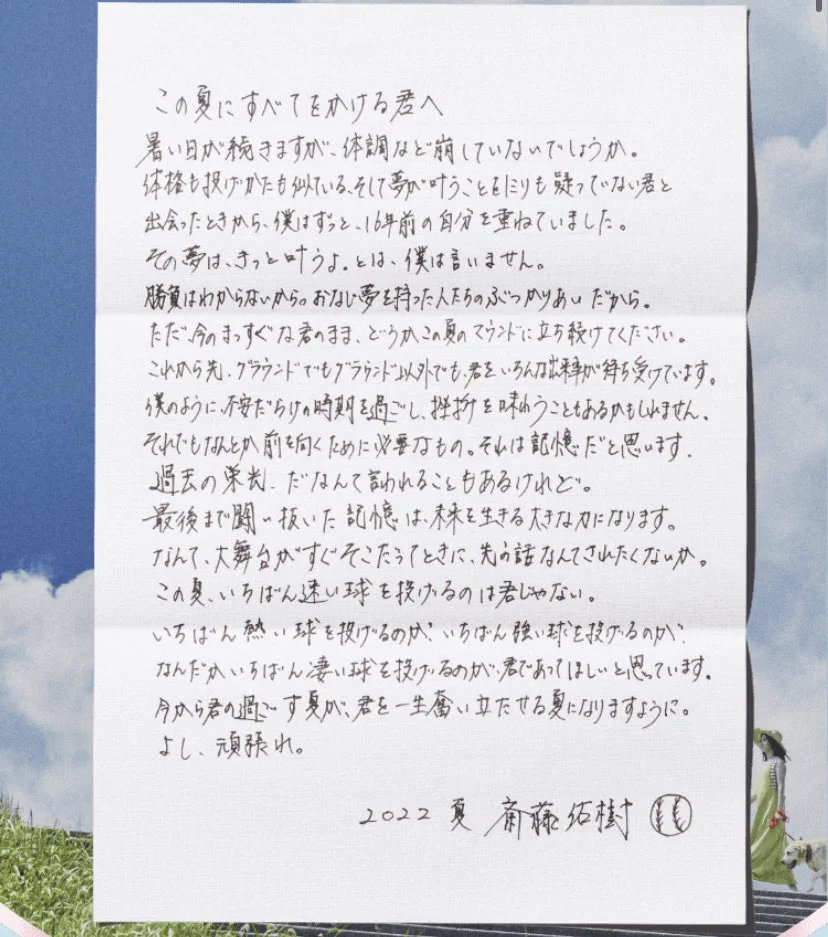 この夏にすべてをかける君へ
暑い日が続きますが、体調など崩していないでしょうか。
体格も投げかたも似ている、そして夢が叶うことをミリも疑っていない君と
出会ったときから、僕はずっと、16年前の自分を重ねていました。
その夢は、きっと叶うよ。とは、僕は言いません。
勝負はわからないから。おなじ夢を持った人たちのぶつかりあいだから。
ただ、今のまっすぐな君のまま、どうかこの夏のマウンドに立ち続けてください。
これから先、グラウンドでもグラウンド以外でも、君をいろんな出来事が待ち受けています。
僕のように、不安だらけの時期を過ごし、挫折を味わうこともあるかもしれません。
それでもなんとか前を向くために必要なもの。それは記憶だと思います。
過去の栄光、だなんて言われることもあるけれど。
最後まで闘い抜いた記憶は、未来を生きる大きな力になります。
なんて、大舞台がすぐそこだってときに、先の話なんてされたくないか。
この夏、いちばん速い球を投げるのは君じゃない。
いちばん熱い球を投げるのが、いちばん強い球を投げるのが、
なんだかいちばん凄い球を投げるのが、君であってほしいと思っています。
今から君の過ごす夏が、君を一生奮い立たせる夏になりますように。
よし、頑張れ。
2022 夏 斎藤佑樹